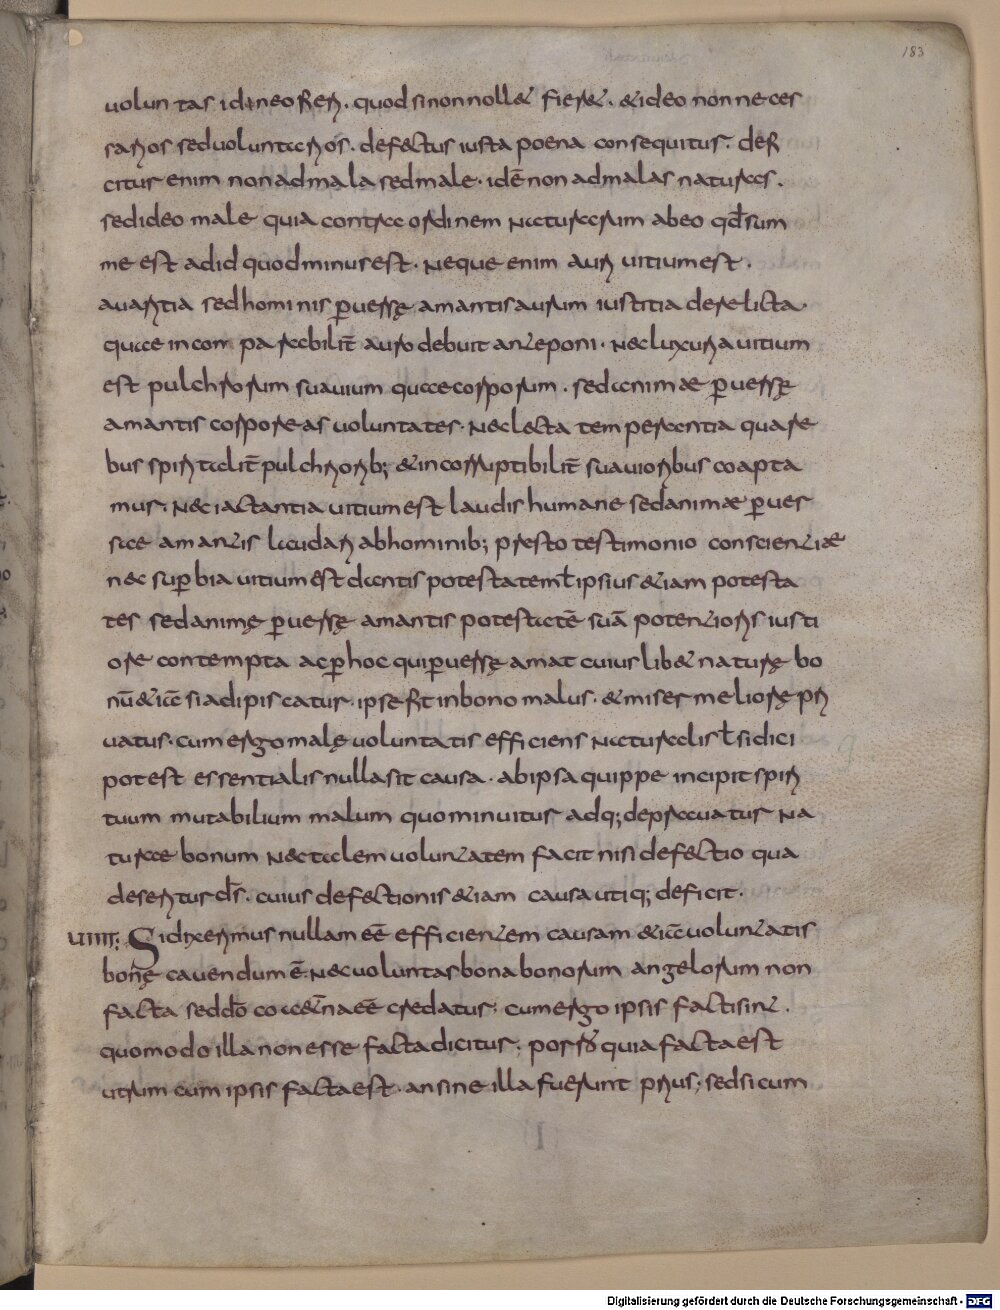 183
uoluntas ideneo fieri. quod si non nollet fieret. & ideo non neces
sarios sed uoluntarios. defectus iusta poena consequitur. defi
citur enim non ad mala sed male. idē non ad malas naturas.
sed ideo male quia contra ordinem naturarum ab eo qd̄ sum
me est ad id quod minus est. neque enim auri uitium est.
auaritia sed hominis ꝑuersę amantis aurum iustitia derelicta.
quae incomparabilit̄ auro debuit anteponi. nec luxuria uitium
est pulchrorum suauium quae corporum. sed animae ꝑuersę
amantis corporeas uoluntates. neclecta temperantia qua re
bus spiritalit̄ pulchriorib; & incorruptibilit̄ suauioribus coapta
mur. nec iactantia uitium est laudis humane sed animae ꝑuer
sae amantis laudari ab hominib; presto testimonio conscientiae
nec suꝑbia uitium est dantis potestatem ł ipsius etiam potesta
tes sed animę ꝑuersę amantis potestatē suā potentioris iusti
ore contempta ac ꝑ hoc qui ꝑuersę amat cuius lib& naturę bo
nū etiā si adipiscatur. ipse fit in bono malus. & miser meliorę pri
uatus. cum ergo malę uoluntatis efficiens naturalis ł si dici
potest essentialis nulla sit causa. ab ipsa quippe incipit spiri
tuum mutabilium malum quo minuitur adq; deprauatur na
turae bonum nec talem uoluntatem facit nisi defectio qua
deseritur d̄s. cuius defectionis etiam causa utiq; deficit.
VIIII. Si dixerimus nullam eē efficientem causam etiā uoluntatis
bonę cauendum ē. nec uoluntas bona bonorum angelorum non
facta sed dō coaet̄na eē credatur. cum ergo ipsi facti sint.
quomodo illa non esse facta dicitur. porro quia facta est
utrum cum ipsis facta est. an sine illa fuerunt prius. sed si cum
Digitalisierung gefördert durch die Deutsche Forschungsgemeinschaft - DFG